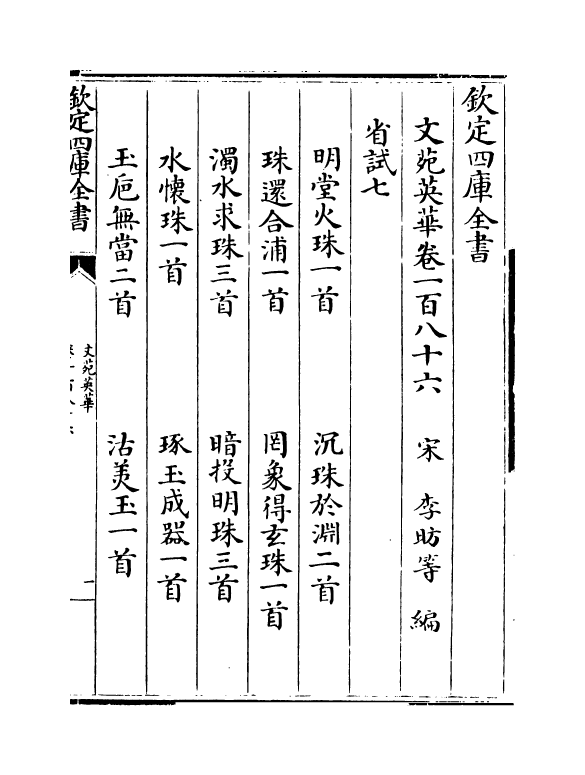 欽定四庫全書
文苑英華卷一百八十六　宋　李昉等　編
省試七
明堂火珠一首　沉珠於淵二首
珠還合浦一首　罔象得玄珠一首
濁水求珠三首　暗投明珠三首
水懷珠一首　琢玉成器一首
玉巵無當二首　沽美玉一首
欽定四庫全書
文苑英華
一